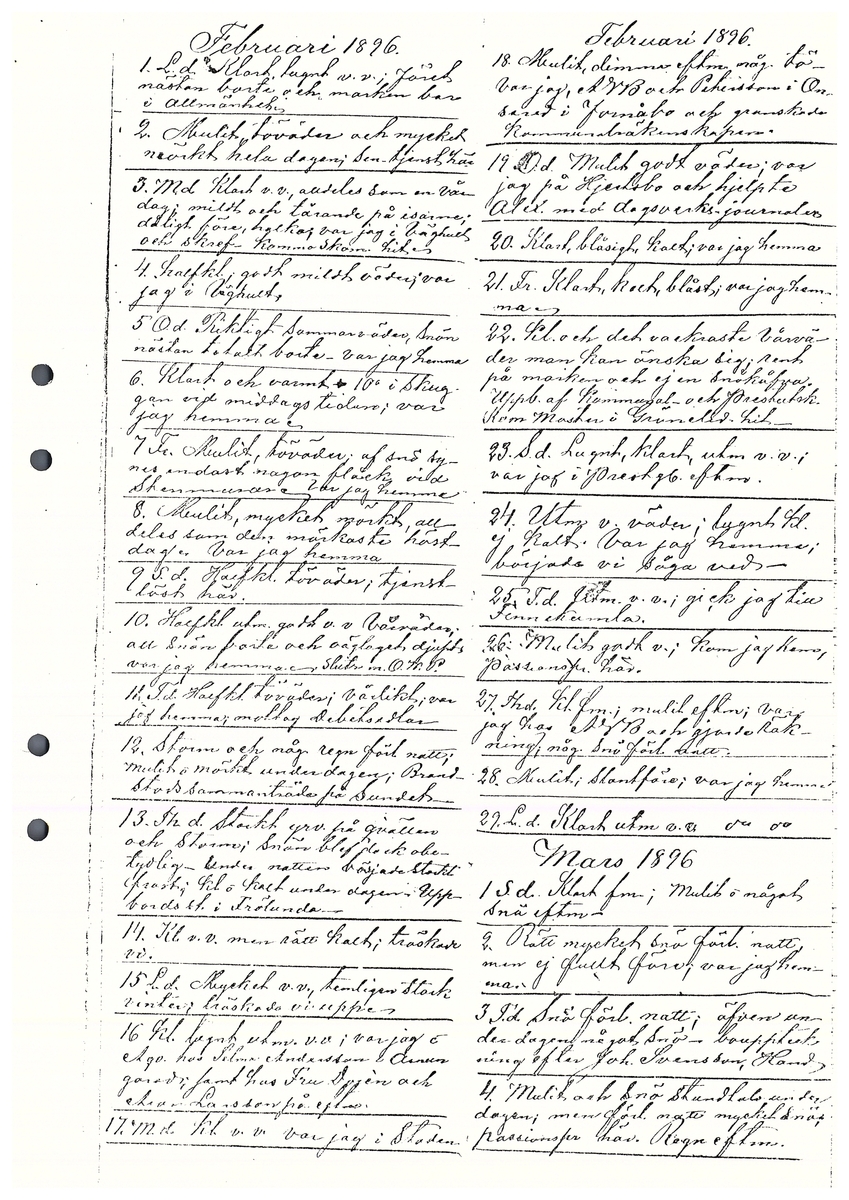 Februari 1896.
1. L.d. Klart, lugnt v.v.; Föret
nästan borta och marken bar
i allmänhet.
2. Mulit, töväder och mycket
mörkt hela dagen; Sen-tjenst här
3. Md Klart v.v., alldeles som en vår-
dag; mildt och tärande på isarne;
dåligt före, var jag i Väghult
och skref
4. Halfkl; godt mildt väder; var
jag i Väghult,
5 Od. Riktigt sommarväder, snön
nästan totalt borta - var jag hemma
6. Klart och varmt + 10° i skug-
gan vid middagstiden; var
jag hemma
7 Fr. Mulit, töväder; af snö sy-
nes endast någon fläck vid
Stenmurarne var jag hemma
8. Mulit, mycket mörkt, all-
deles som den mörkaste höst-
dag. Var jag hemma
9 S.d. Halfkl. töväder; tjenst-
löst här.
10. Halfkl utm. godt v.v Vårväder;
all snön borta och väglaget djupt,
var jag hemma,
11. T.d. Halfkl töväder; vårlikt; var
jag hemma; mottog debetsedlar
12. Storm och någ. regn förl. natt;
mulit o mörkt under dagen; Brand-
stodssammanträde på Sundet
13. Th d. Starkt yrv. på qvällen
och Storm; snön blef dock obe-
tydlig - Under natten började starkt
frost; Kl o kalt under dagen. Upp-
bördsst. i Frölunda
14. Kl. v.v. men rätt kalt; tröskade
vi.
15 L.d. Mycket v.v., temligen stark
vinter; tröskade vi uppe
16 Kl. lugnt utm. v.v; var jag o
Aga. hos Selma Andersson i
gared; samt hos Fru och
Larsson på eftm.
17. M.d. Kl v.v. var jag i Staden
Februari 1896.
18. Mulit, dimma eftm. någ. tö-
var jag, AVB och Petersson i On-
sered i Jornåbo och granskade
Kommunalräkenskapen.
19 O.d. Mulit godt väder; var
jag på Hjertsbo och hjelpte
Alex. med dagsverks-journalen
20. Klart, blåsigt, kalt; var jag hemma
21. Fr. Klart, kalt, blåst; var jag hem-
ma
22. Kl. och det vackraste Vårvä-
der man kan önska sig; rent
på marken och ej en snökåfva.
Uppb. af Kommunal- och Prestutsk.
Kom Moster i Gröneled hit
23. S.d. Lugnt, klart, utm v.v.;
var jag i Prestgb. eftm.
24. Utm v. väder; lugnt kl.
ej kalt. Var jag hemma;
började vi såga ved
25. T.d. Utm. v.v.; gick jag till
Finnekumla.
26. Mulit godt v.; kom jag hem,
Passionspr. här.
27. Thd. Kl. fm.; mulit eftm; var
jag hos AVB och gjorde räk-
ning; någ. snö förl. natt.
28. Mulit; slantföre; var jag hemma
29. L.d. Klart utm v.v. do do
Mars 1896
1 S.d. Klart fm; Mulit o något
snö eftm
2. Rätt mycket snö förl. natt,
men ej fullt före; var jag hem-
ma.
3 T.d. Snö förl. natt; äfven un-
der dagen något snö - bouppteck-
ning efter Joh. Svensson, Hand
4. Mulit och Snö stundtals under
dagen; men förl. natt mycket snö;
passionspr här. Regn eftm.